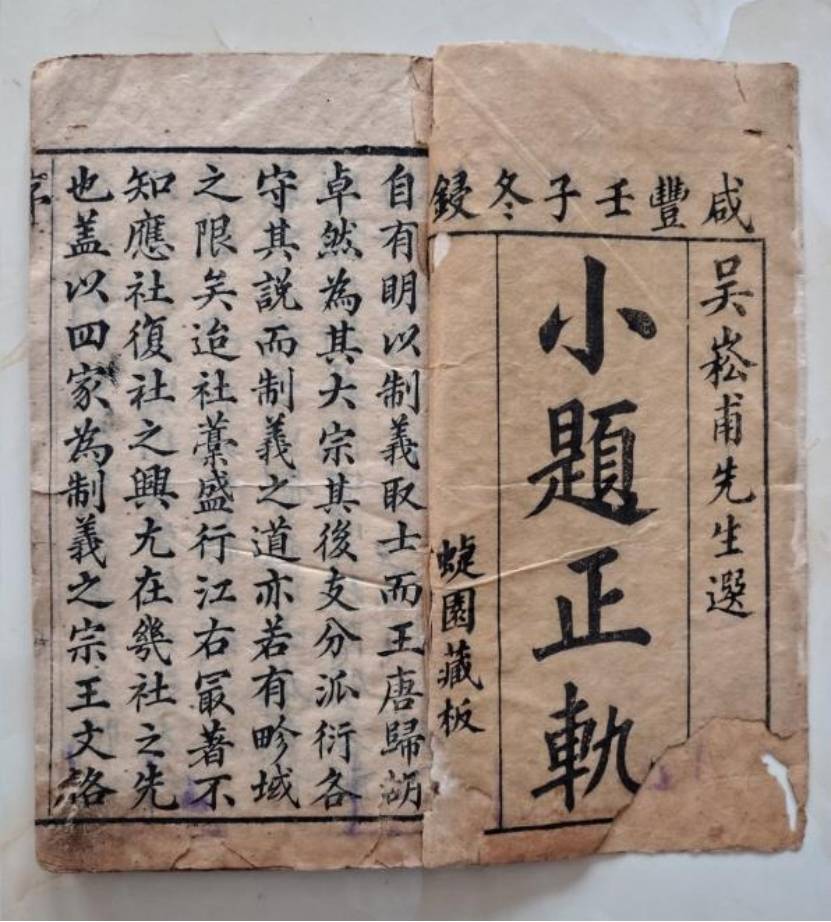 咸豐壬子冬鋟
吴崧甫先生選
小題正軌
蜨園藏板
自有明以制義取士而王唐歸胡
卓然為其大宗其後支分派衍各
守其說而制義之道亦若有畛域
之限矣迨社藁盛行江右冣著不
知應社復社之興尢在㡬社之先
也盖以四家為制義之宗王文恪
序